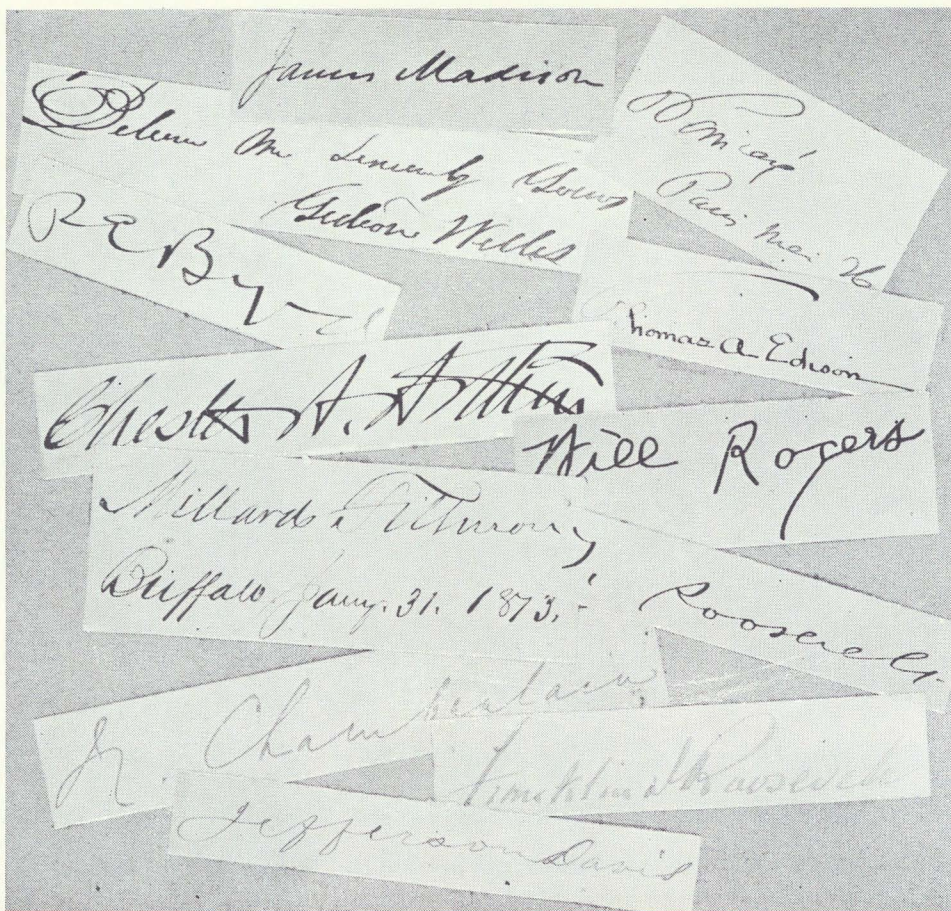 James Madison
Believe Me Sincerely Yours
Gideon Welles
Poincaré
Paris Mai 26
R E Byrd
Thomas A Edison
Chester A. Arthur
Will Rogers
Millard Fillmore
Buffalo, Jany. 31. 1873.
Roosevelt
Chamberlain
Franklin D Roosevelt
Jefferson Davis